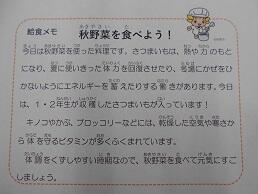 給食メモ 秋野菜を食べよう！
今日は秋野菜を使った料理です。さつまいもは、熱や力のもと
になり、夏に使いきった体力を回復させたり、冬場にかぜをひ
かないようにエネルギーを蓄えたりする働きがあります。今日
は、1・2年生が収穫したさつまいもが入っています！
キノコやかぶ、ブロッコリーなどには、乾燥した空気や寒さか
ら体を守るビタミンが多くふくまれています。
体調をくずしやすい時期なので、秋野菜を食べて元気にすご
しましょう。